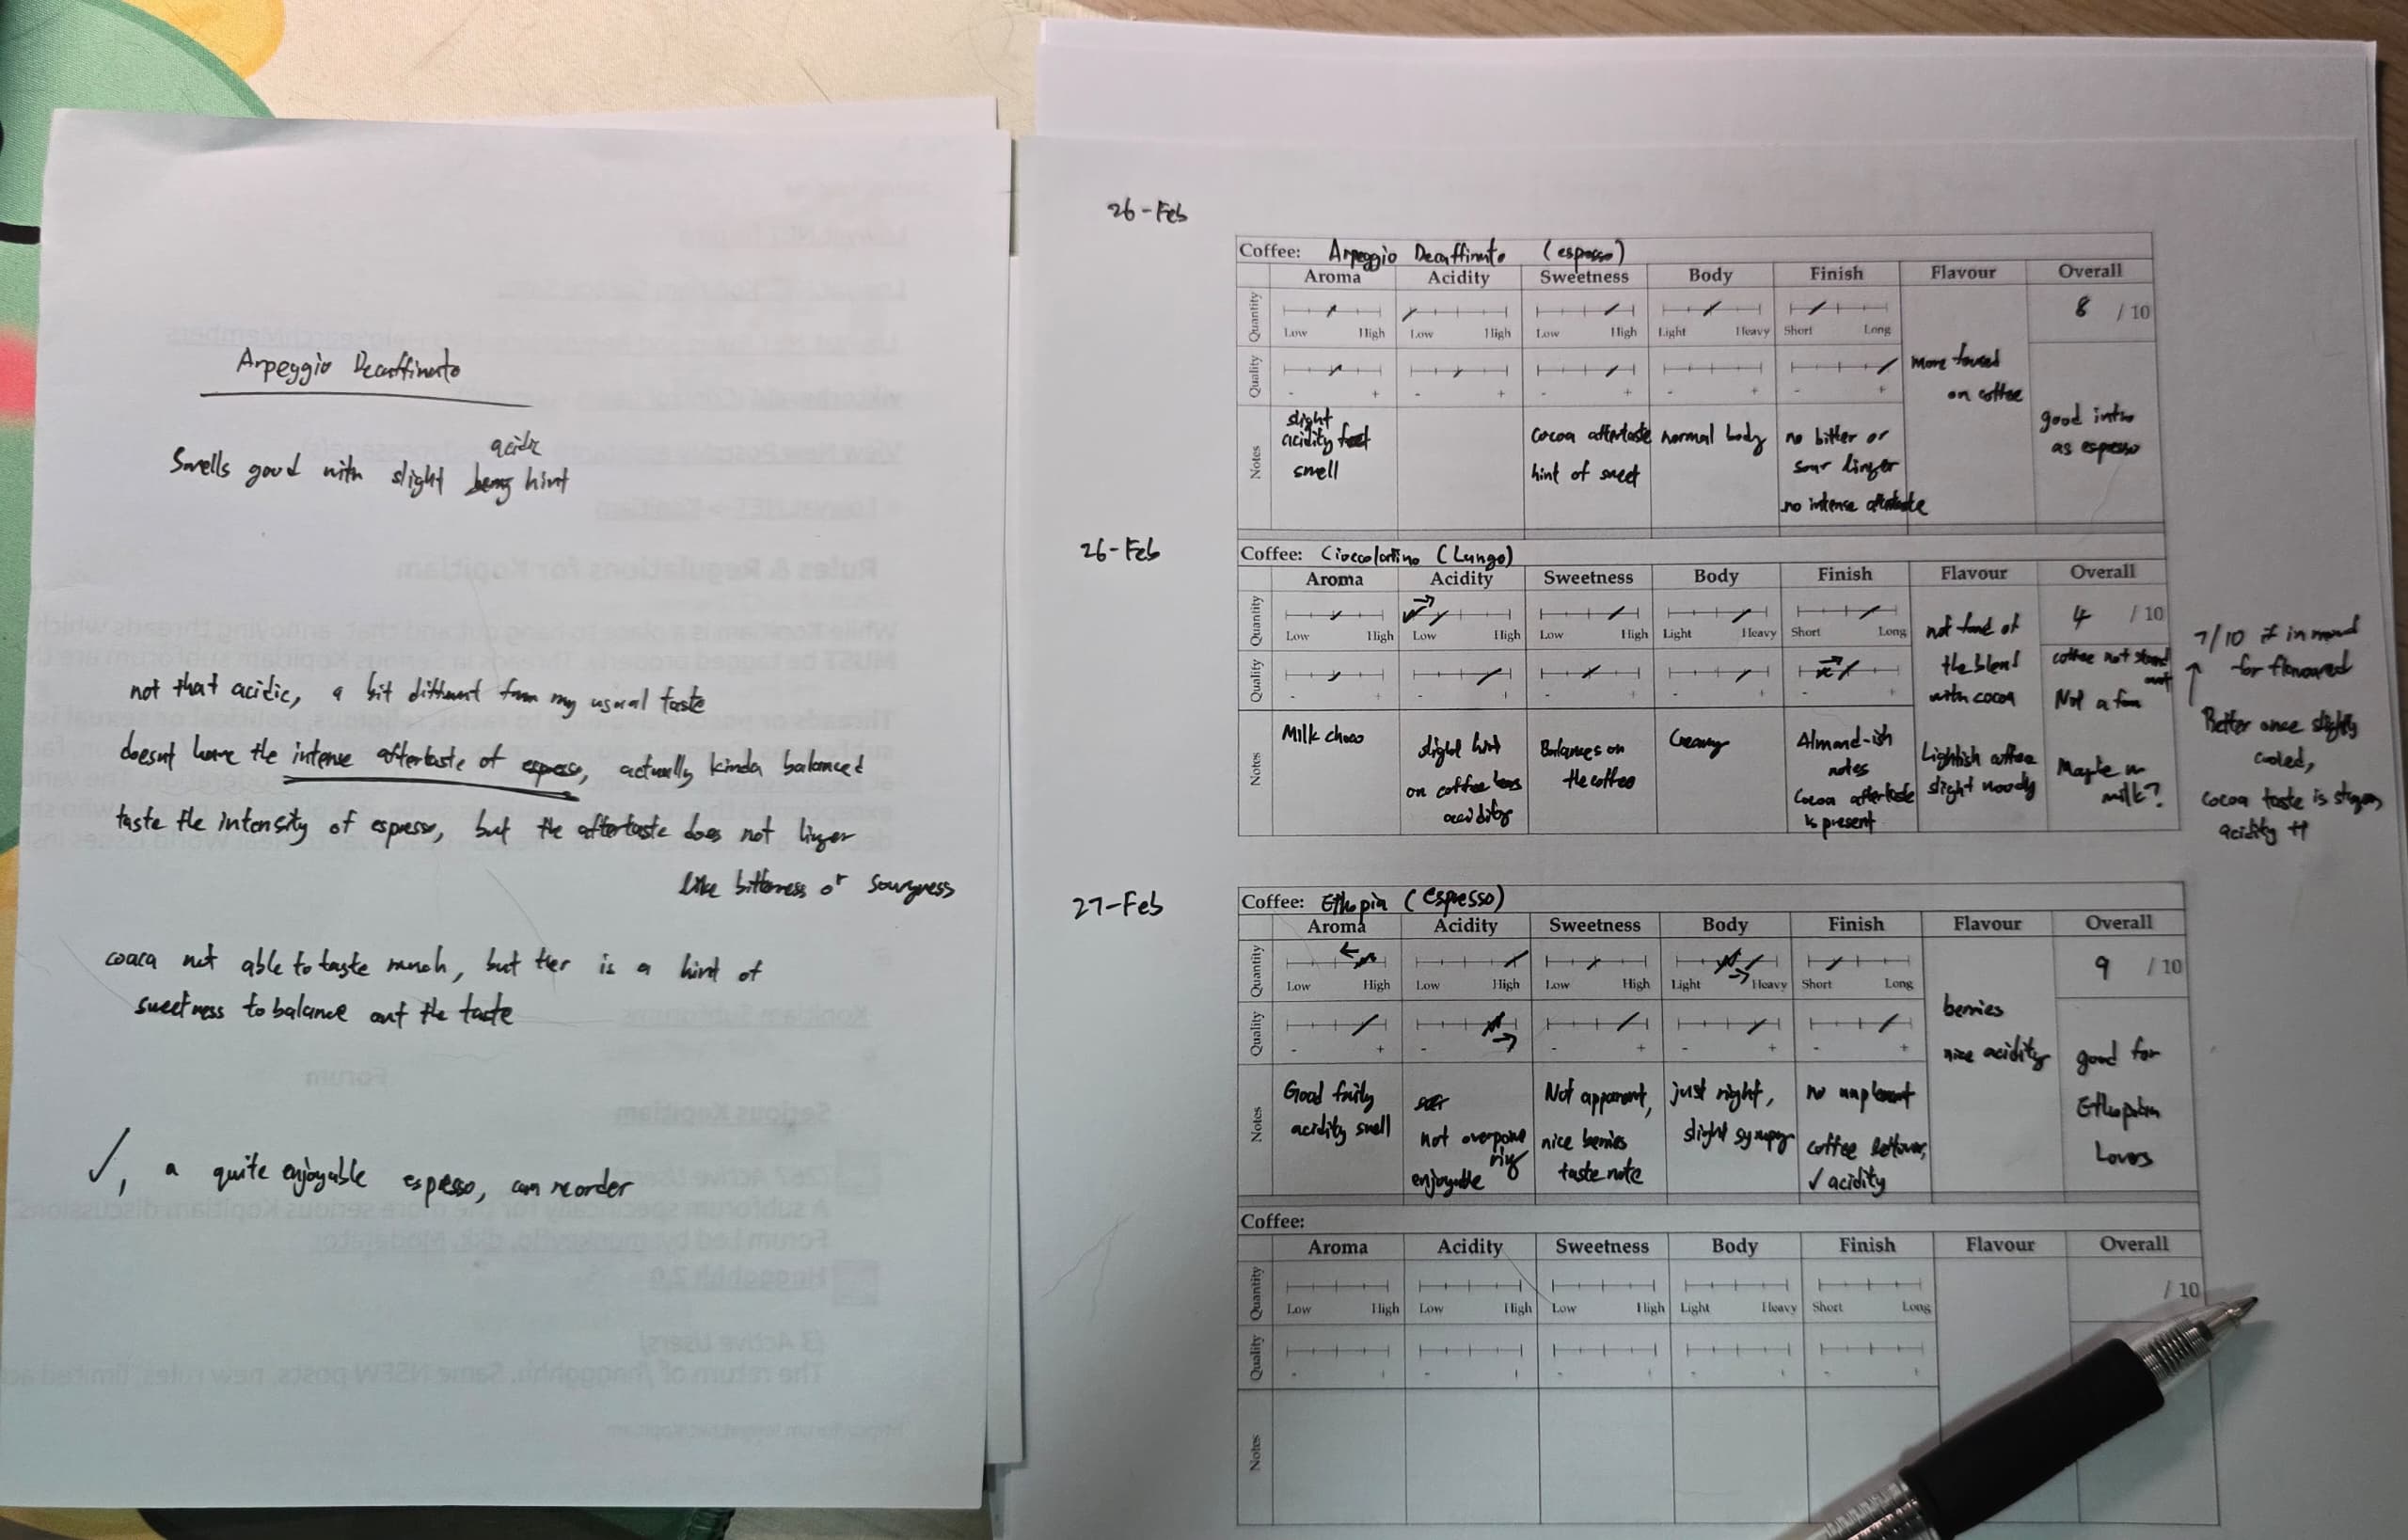 Arpeggio Decaffinato
acidic
Smells good with slight hint
not that acidic, a bit different from my usual taste
doesnt have the intense aftertaste of espresso, actually kinda balanced
taste the intensity of espresso, but the aftertaste does not linger
like bitterness or
coaca not able to taste much, but ther is a hint of
sweetness to balance out the taste
✓, a quite enjoyable espresso, can reorder
26-Feb
Coffee: Arpeggio Decaffinato (espresso)
Aroma Acidity Sweetness Body Finish Flavour Overall
Quantity
Low High Low High Low High Light Heavy Short Long
8 / 10
Quality
- + - + - + - + - +
more
on coffee
good intro
as espresso
Notes
slight
acidity
smell
cocoa aftertaste
hint of sweet
normal body
no bitter or
sour linger
no intense aftertaste
26-Feb
Coffee: (Lungo)
Aroma Acidity Sweetness Body Finish Flavour Overall
Quantity
Low High Low High Low High Light Heavy Short Long
4 / 10
Quality
- + - + - + - + - +
not fond of
the blend
with cocoa
Lightish coffee
slight woody
coffee not stand
out
Not a fan
Maybe w
milk?
Notes
Milk choco
slight hint
on coffee
acidity
Balances on
the coffee
Creamy
Almond-ish
notes
Cocoa aftertaste
is present
7/10 if in mood
for flavoured
Better once slightly
cooled,
cocoa taste is
acidity ++
27-Feb
Coffee: Ethopia (Espresso)
Aroma Acidity Sweetness Body Finish Flavour Overall
Quantity
Low High Low High Low High Light Heavy Short Long
9 / 10
Quality
- + - + - + - + - +
berries
nice acidity
good for
Ethiopian
Lovers
Notes
Good fruity
acidity smell
not overpowe
ring
enjoyable
Not apparent,
nice berries
taste note
just right,
slight syrupy
no
coffee leftover,
✓ acidity
Coffee:
Aroma Acidity Sweetness Body Finish Flavour Overall
Quantity
Low High Low High Low High Light Heavy Short Long
/ 10
Quality
Notes